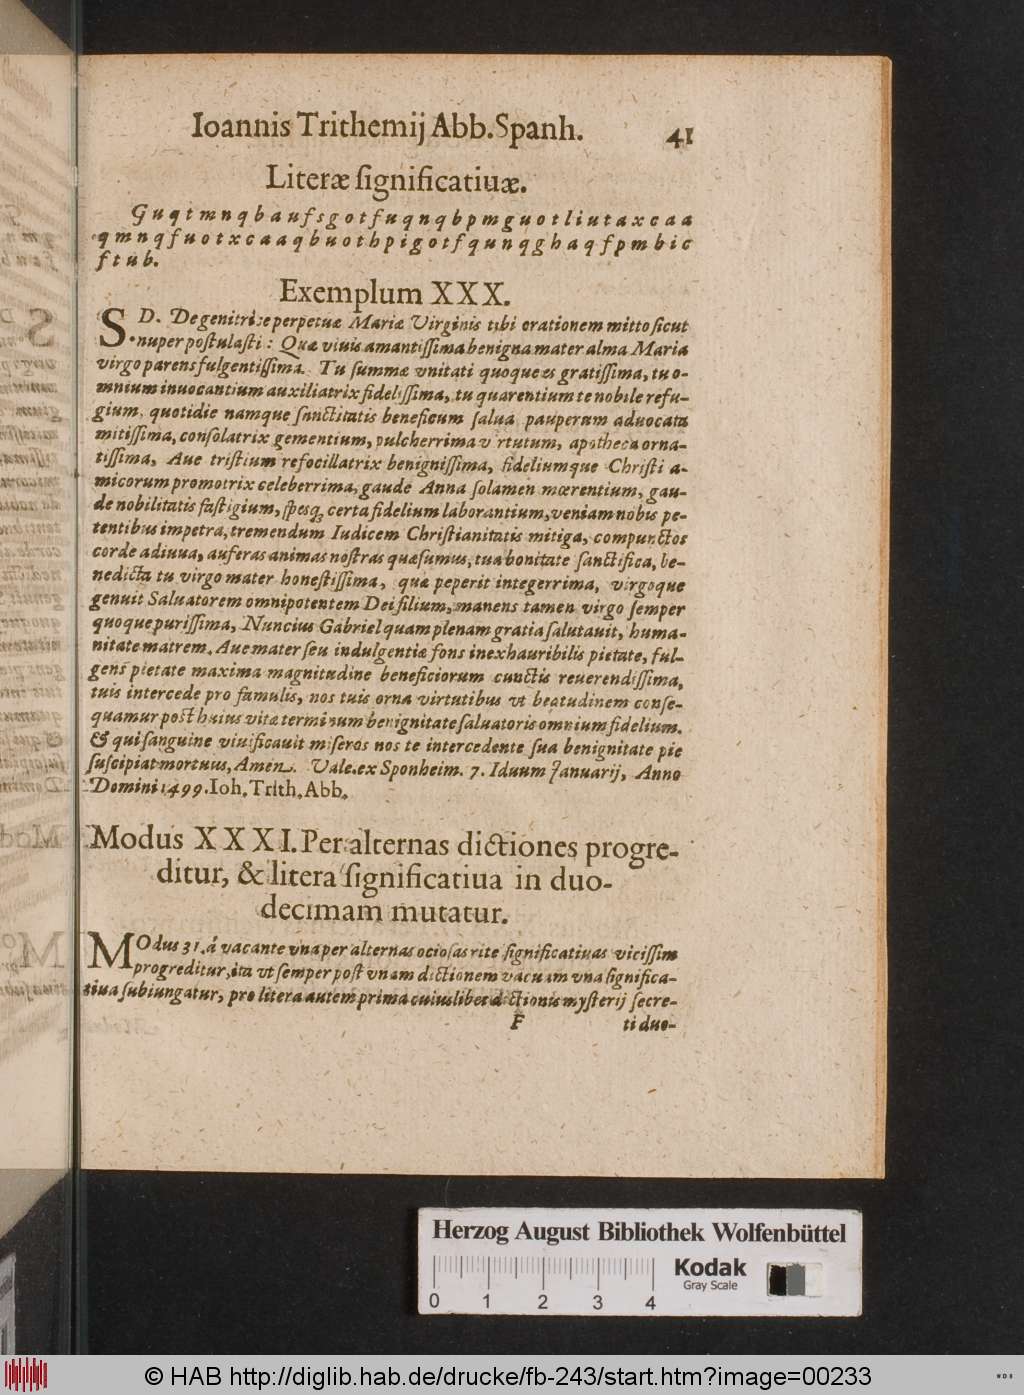 Ioannis Trithemij Abb. Spanh. 41
Literæ ſignificatiuæ.
G u q t m n q b a u f s g o t f u q n q b p m g u o t l i u t a x c a a
q m n q f u o t x c a a q b u o t h p i g o t f q u n q g h a q f p m b i c
f t u b.
Exemplum XXX.
S D. De genitrice perpetuæ Mariæ Virginis tibi orationem mitto ſicut
nuper poſtulaſti: Quæ viuis amantiſſima benigna mater alma Maria
virgo parens fulgentiſſima. Tu ſummæ vnitati quoque es gratiſſima, tu o-
mnium inuocantium auxiliatrix fideliſſima, tu quærentium te nobile refu-
gium, quotidie namque ſanctitatis beneficum ſalua pauperum aduocata
mitiſſima, conſolatrix gementium, pulcherrima virtutum, apotheca orna-
tiſſima, Aue triſtium refocillatrix benigniſſima, fideliumque Chriſti a-
micorum promotrix celeberrima, gaude Anna ſolamen mœrentium, gau-
de nobilitatis faſtigium, ſpesq; certa fidelium laborantium, veniam nobis pe-
tentibus impetra, tremendum Iudicem Chriſtianitatis mitiga, compunctos
corde adiuua, auferas animas noſtras quæſumus, tua bonitate ſanctifica, be-
nedicta tu virgo mater honeſtiſſima, quæ peperit integerrima, virgoque
genuit Saluatorem omnipotentem Dei filium, manens tamen virgo ſemper
quoque puriſſima, Nuncius Gabriel quam plenam gratia ſalutauit, huma-
nitate matrem. Aue mater ſeu indulgentiæ fons inexhauribilis pietate, ful-
gens pietate maxima magnitudine beneficiorum cunctis reuerendiſſima,
tuis intercede pro famulis, nos tuis orna virtutibus vt beatudinem conſe-
quamur poſt huius vitæ terminum benignitate ſaluatoris omnium fidelium.
& qui ſanguine viuificauit miſeros nos te intercedente ſua benignitate pie
ſuſcipiat mortuus, Amen. Vale. ex Sponheim. 7. Iduum Januarij, Anno
Domini 1499. Ioh. Trith. Abb.
Modus XXXI. Per alternas dictiones progre-
ditur, & litera ſignificatiua in duo-
decimam mutatur.
MOdus 31. á vacante vna per alternas ocioſas rite ſignificatiuas viciſſim
progreditur, ita vt ſemper poſt vnam dictionem vacuam vna ſignifica-
tiua ſubiungatur, pro litera autem prima cuiuslibet dictionis myſterij ſecre-
F ti duo-
Herzog August Bibliothek Wolfenbüttel
Kodak
Gray Scale
0 1 2 3 4
© HAB http://diglib.hab.de/drucke/fb-243/start.htm?image=00233